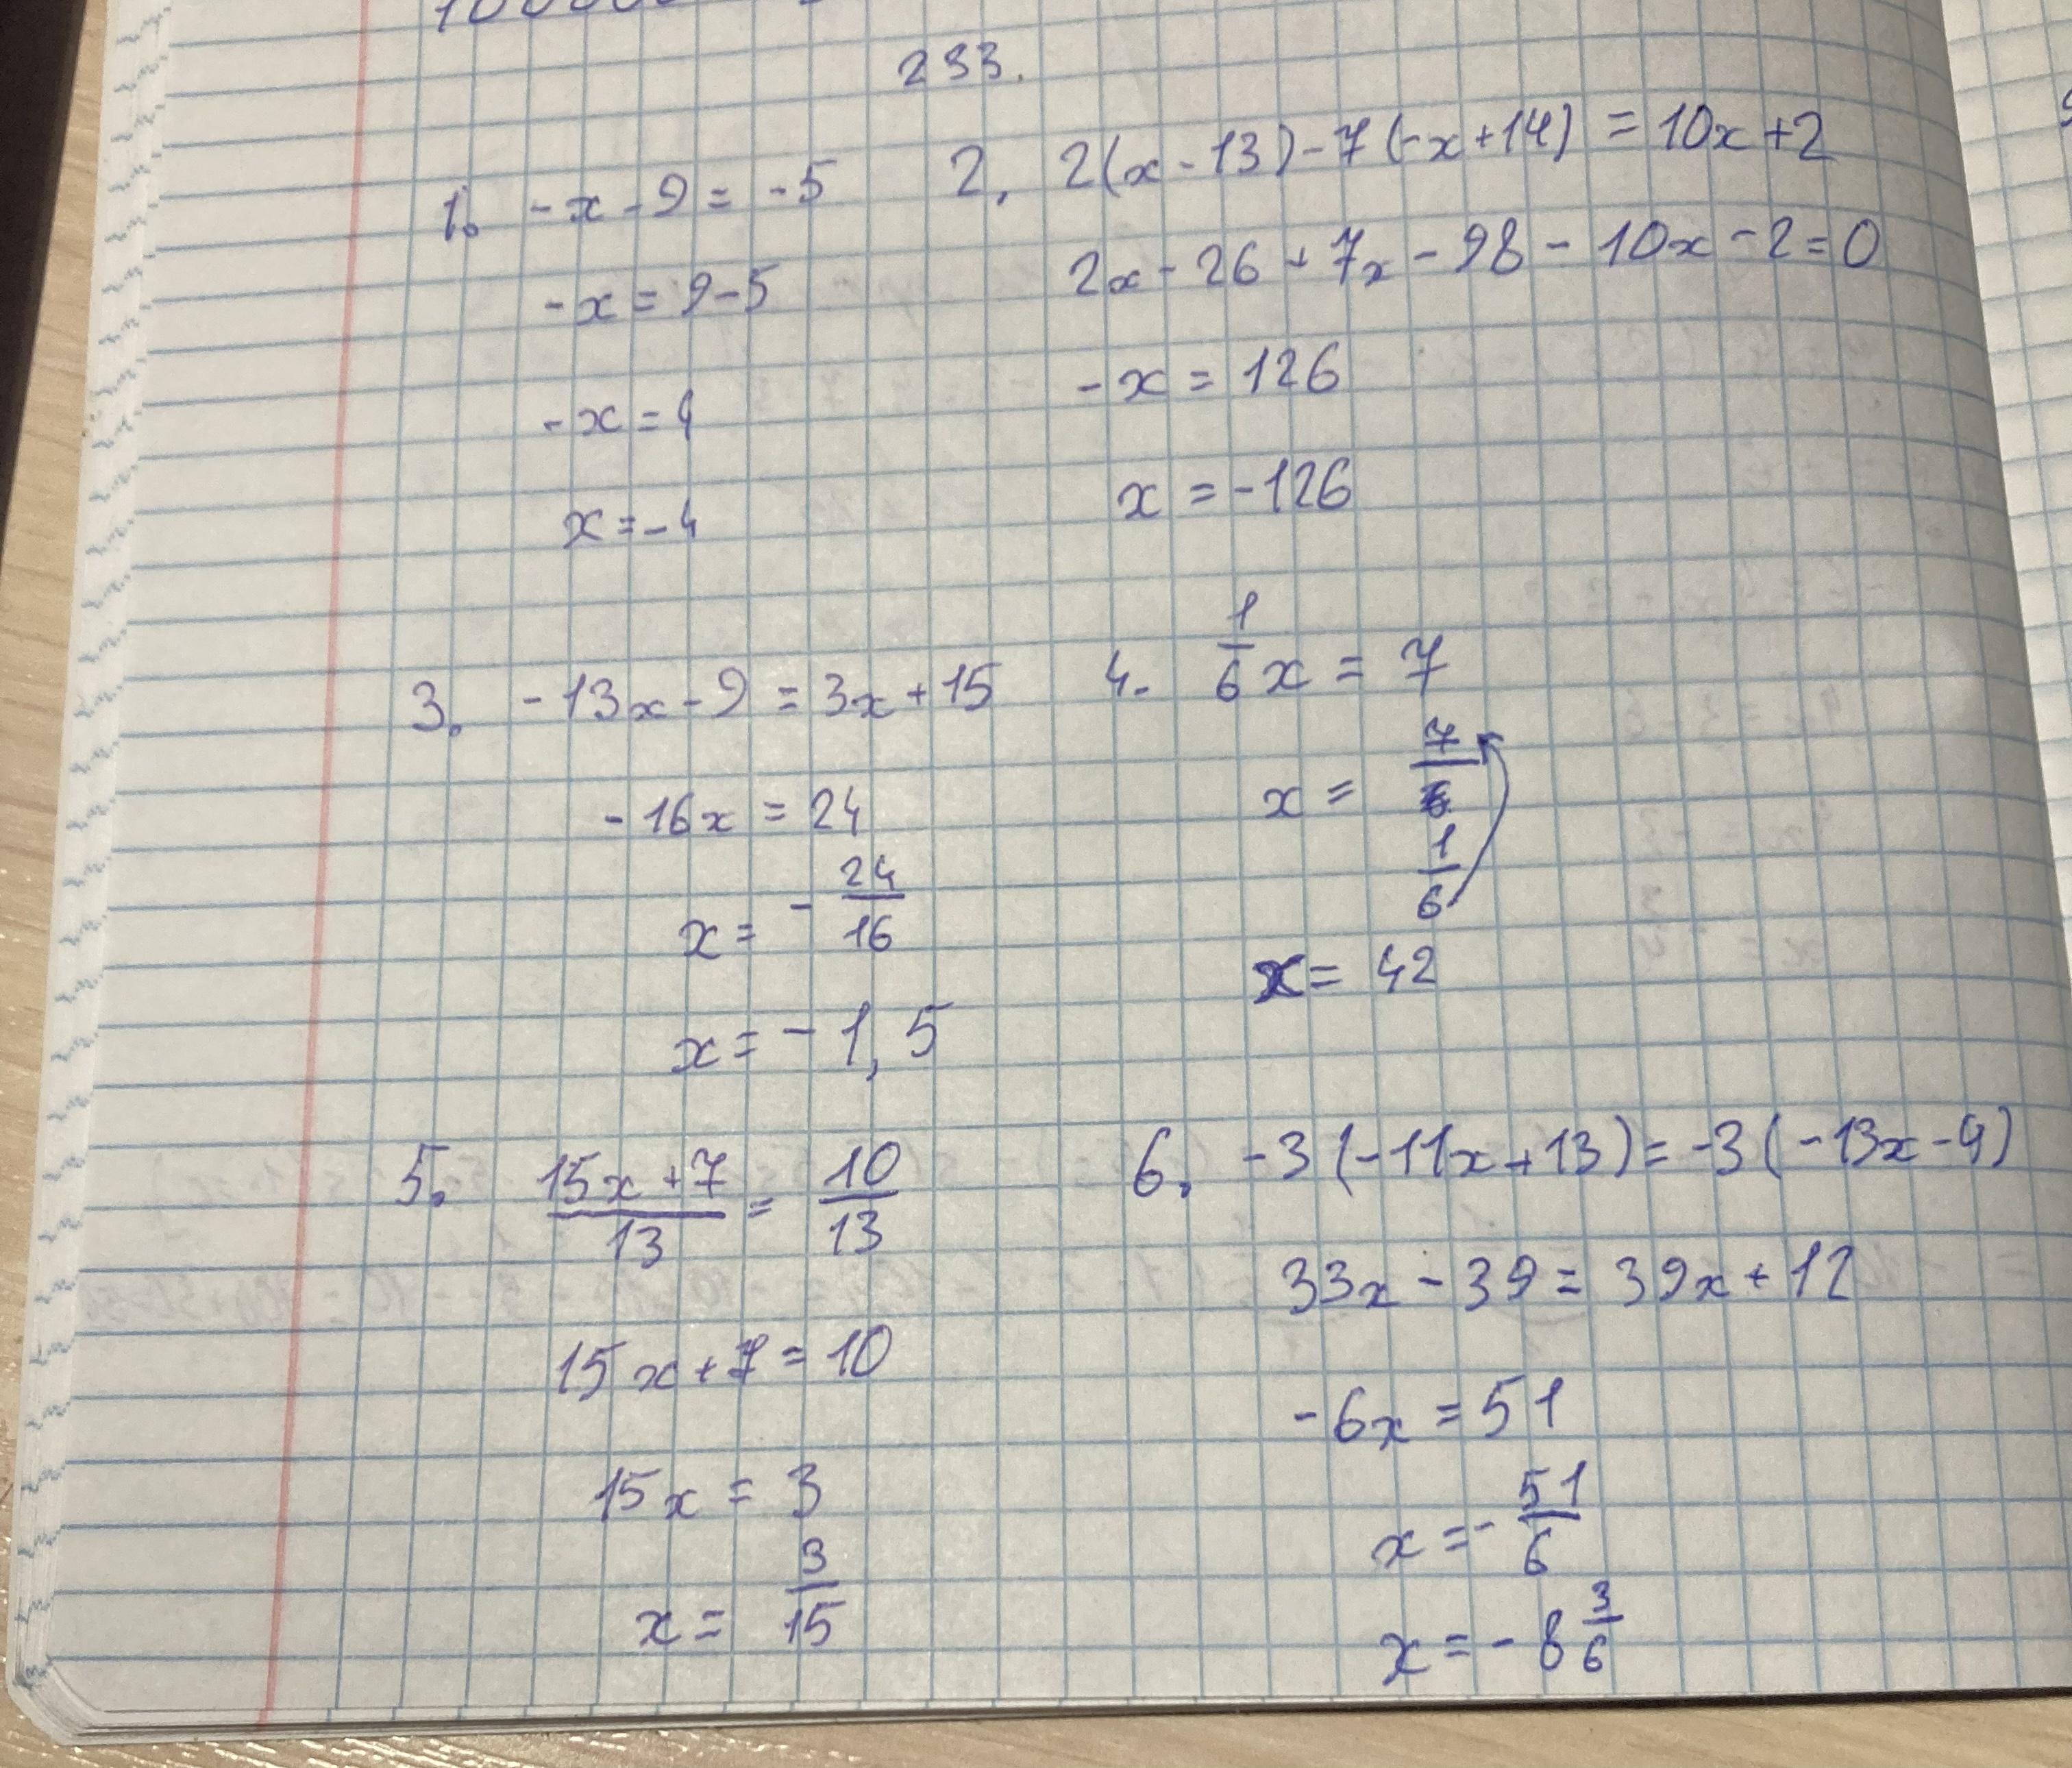 233.
1. -x-9=-5
-x=9-5
-x=4
x=-4
2. 2(x-13)-7(-x+14)=10x+2
2x-26+7x-98-10x-2=0
-x=126
x=-126
3. -13x-9=3x+15
-16x=24
x=-24/16
x=-1,5
4. 1/6x=7
x=7/
1/6
x=42
5. 15x+7/13=10/13
15x+7=10
15x=3
x=3/15
6. -3(-11x+13)=-3(-13x-4)
33x-39=39x+12
-6x=51
x=-51/6
x=-8 3/6